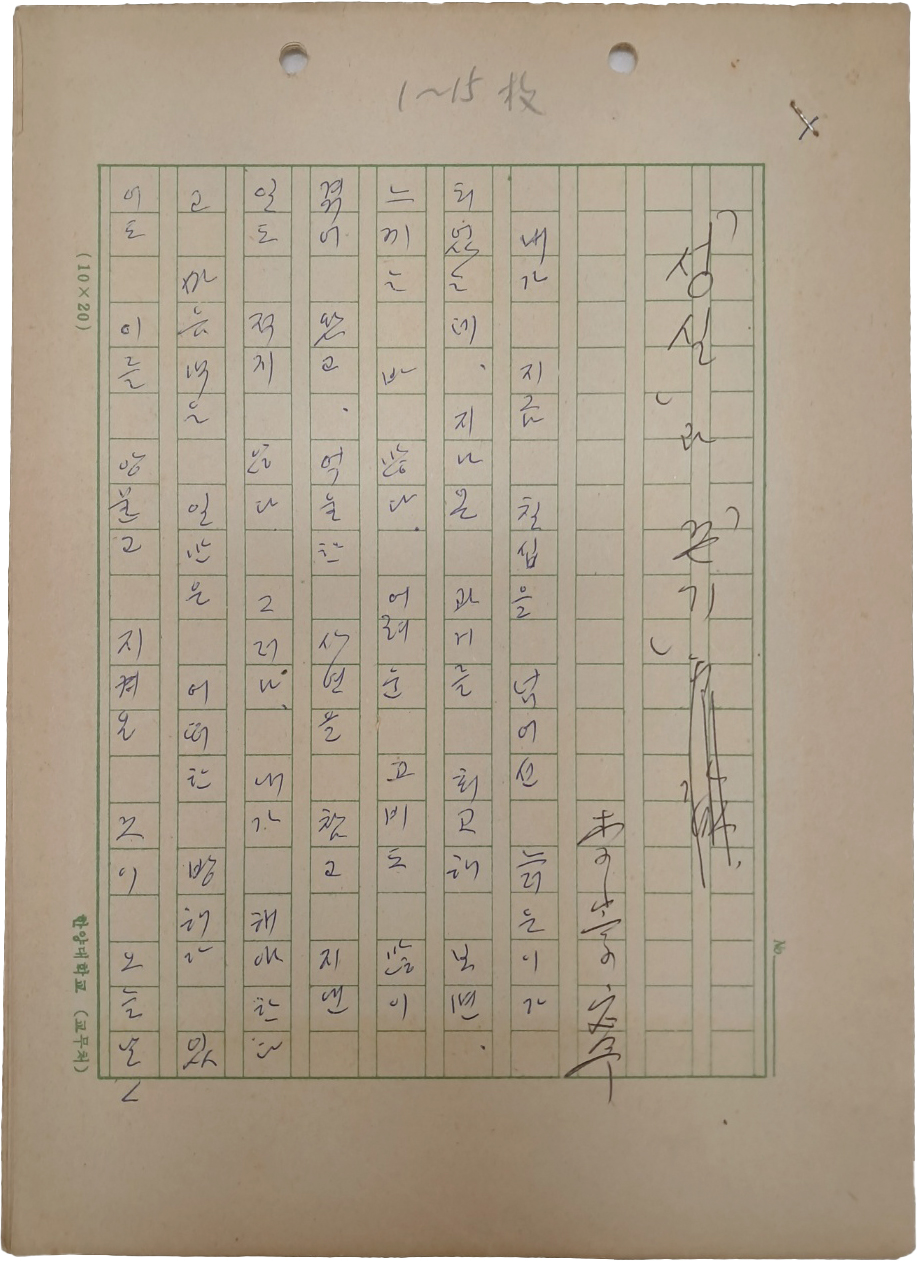 1~15 枚
No.
「성실」과 「끈기」
내가 지금 칠십을 넘어선 늙은이가
되었는데. 지나온 과거를 회고해 보면.
느끼는 바 많다. 어려운 고비도 많이
겪어 왔고. 억울한 사연을 참고 지낸
일도 적지 않다 그러나. 내가 해야 한다
고 마음먹은 일만은 어떠한 방해가 있
어도 이를 악물고 지켜온 것이 오늘날
(10×20)
한양대학교 (교무처)